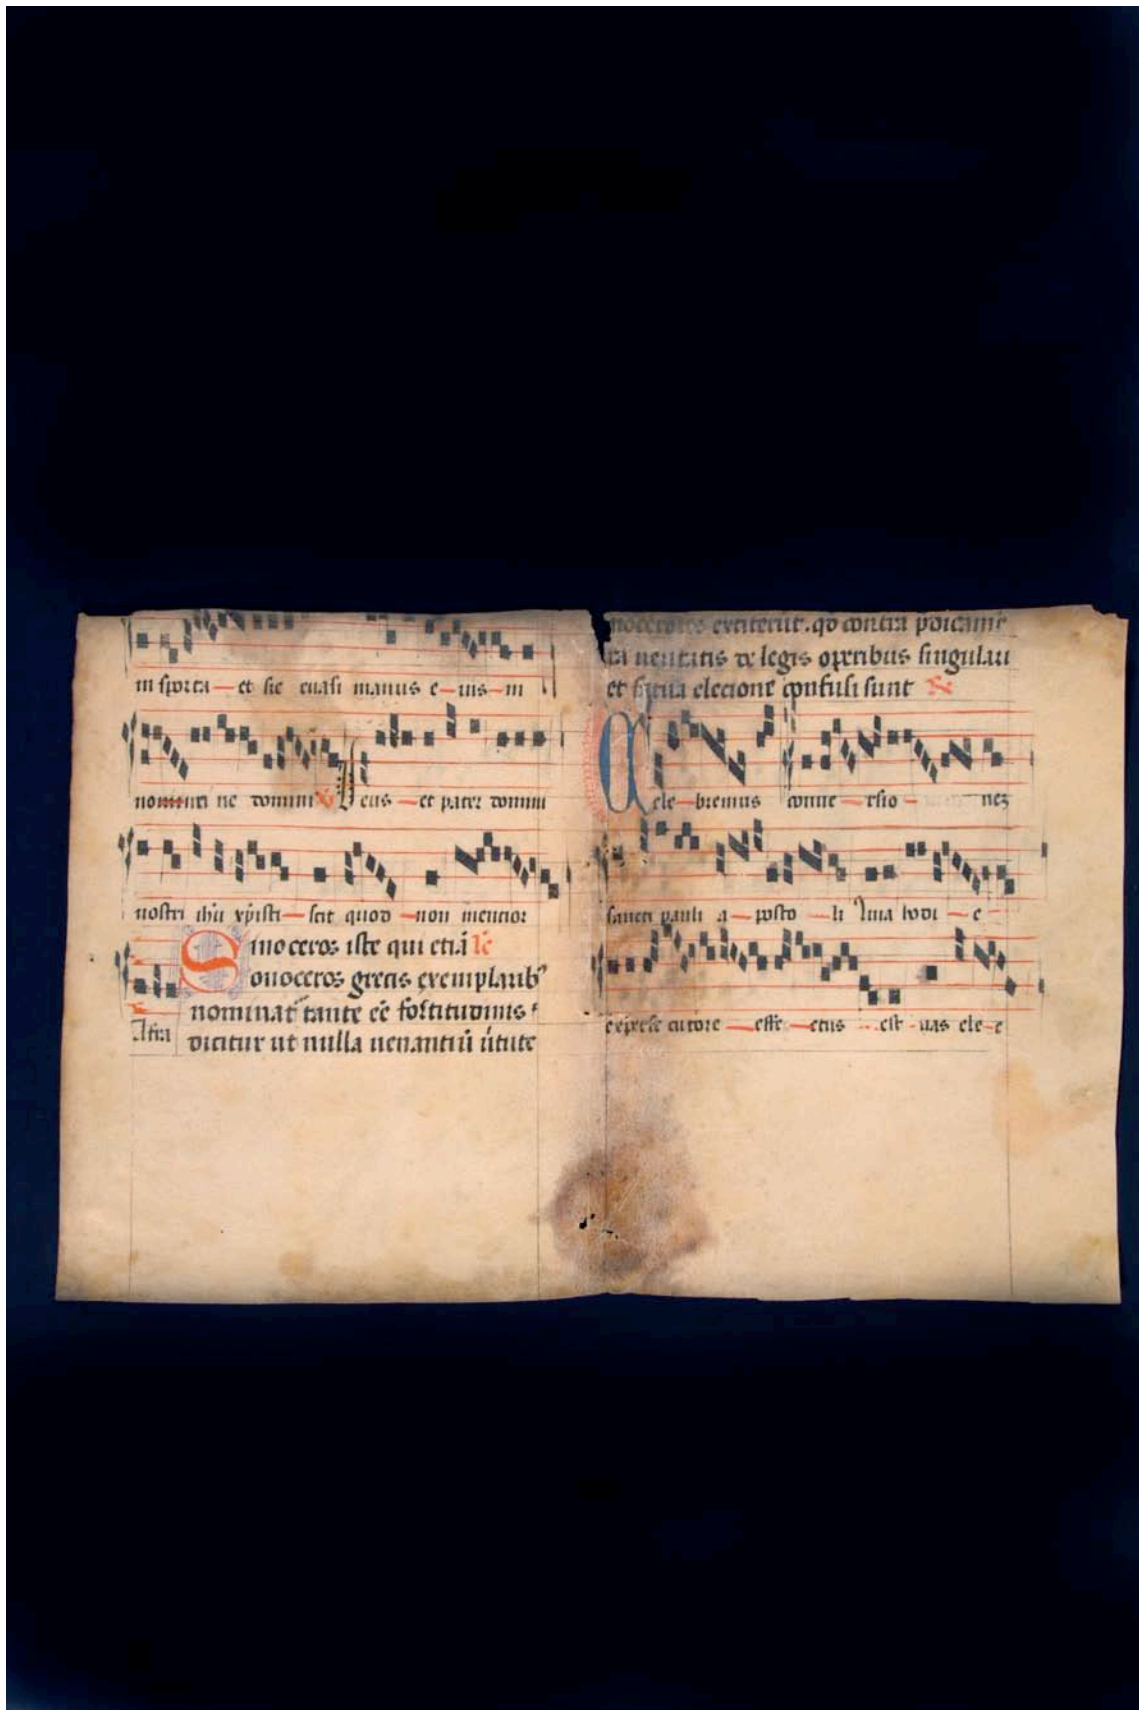 in sporta — et sic euasi manus e — ius — in
nomini ne domini ℣ Deus — et pater domini
nostri ihu xpisti — scit quod — non mencior
Sinoceros iste qui etiā
onoceros grecis exemplarib⁹
nominat᷑ tante eē fortitudinis
Afra
dicitur ut nulla uenantiū u̇tute
extiterit. qd contra
ta ueritatis de legis operibus singulari
et elecione confusi sunt ℟
Cele — bremus conue — rsio — neʒ
sancti pauli a — posto — li quia hodi — e
ex cutore — effe — ctus — est uas ele — c